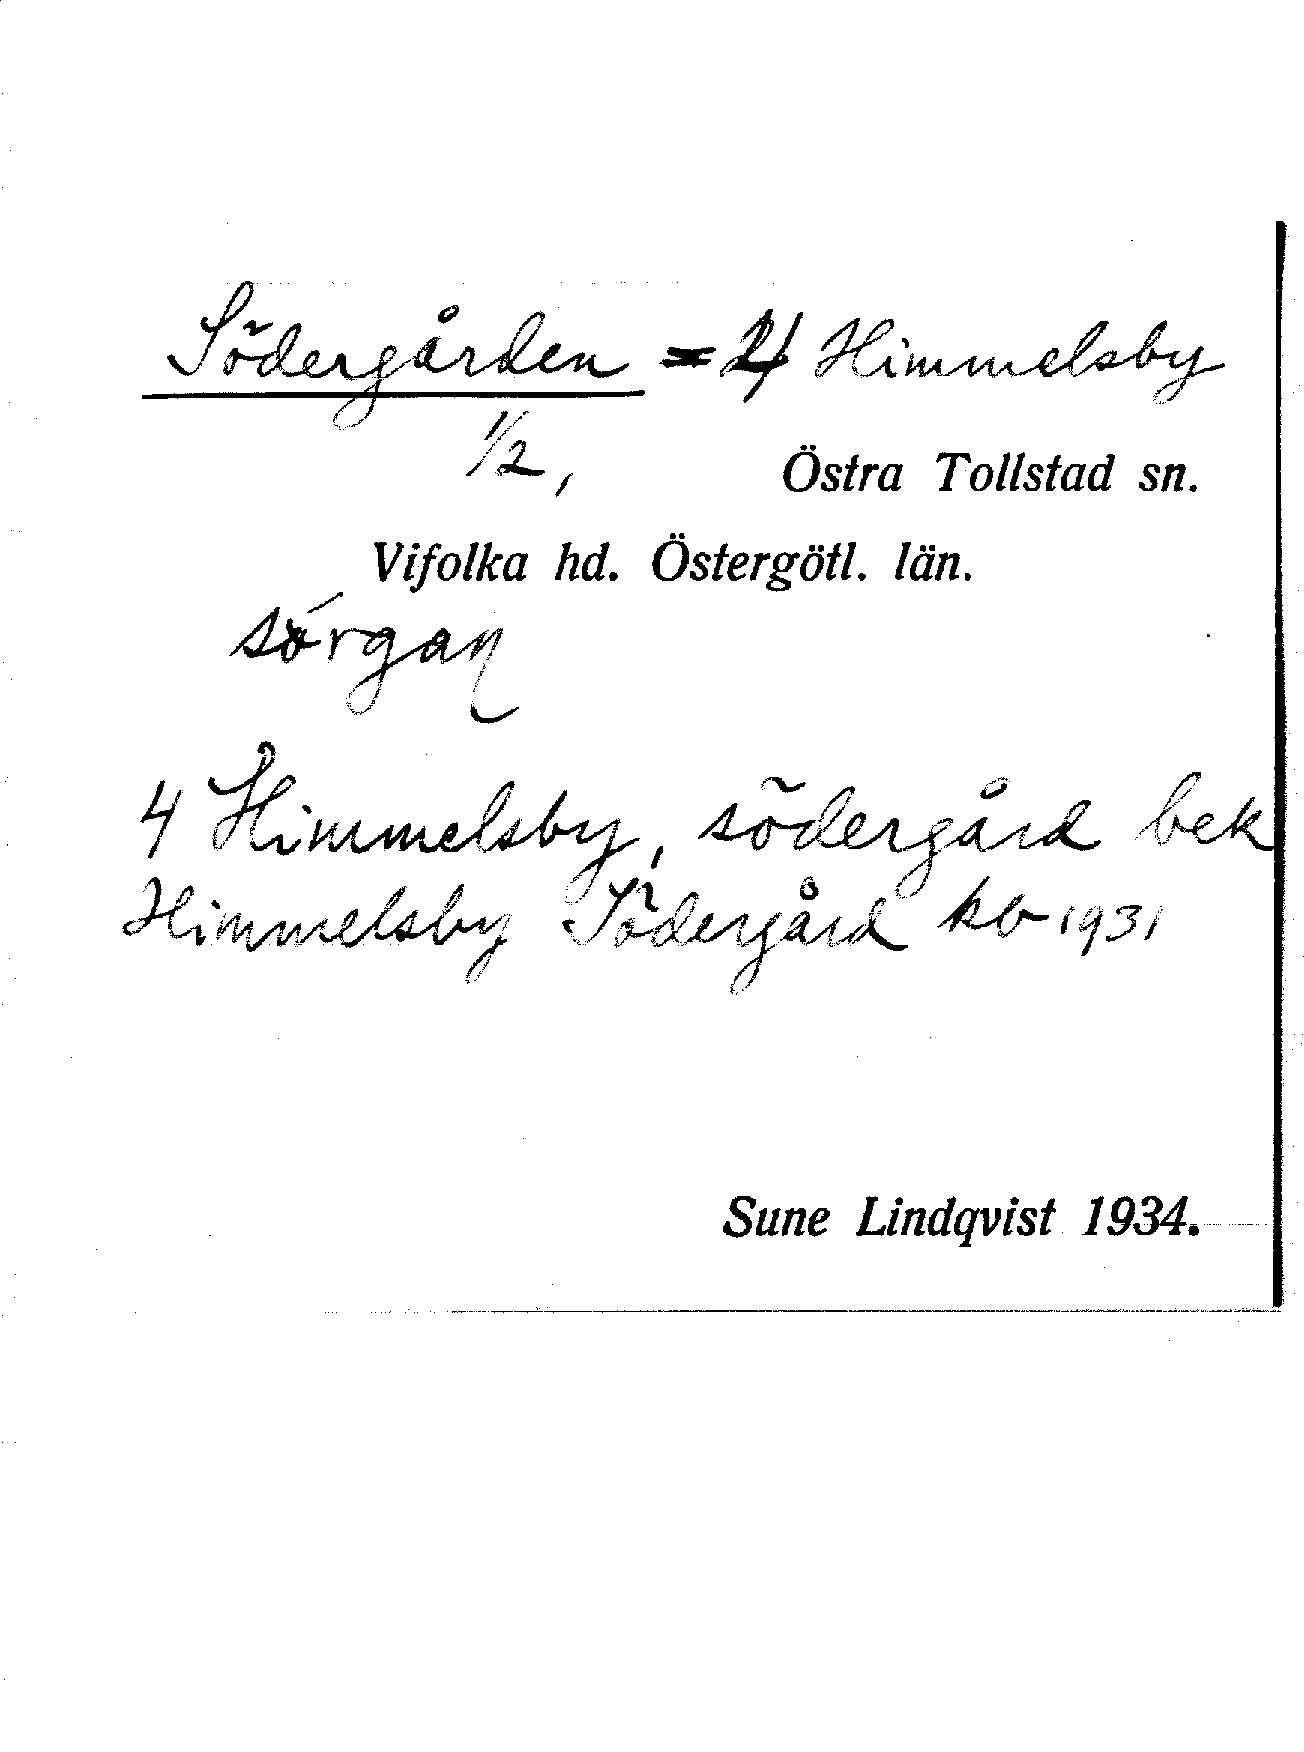 Södergården = 4 Himmelsby
1/2,
Östra Tollstad sn.
Vifolka hd. Östergötl. län.
4 Himmelsby, södergård bek
Himmelsby Södergård kb 1931
Sune Lindqvist 1934.